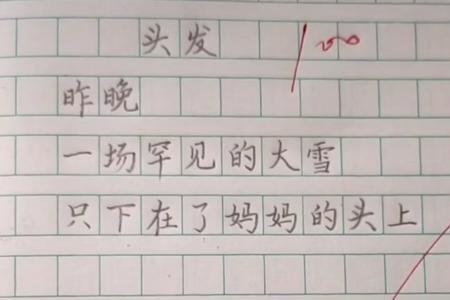 头发 100
昨晚
一场罕见的大雪
只下在了妈妈的头上